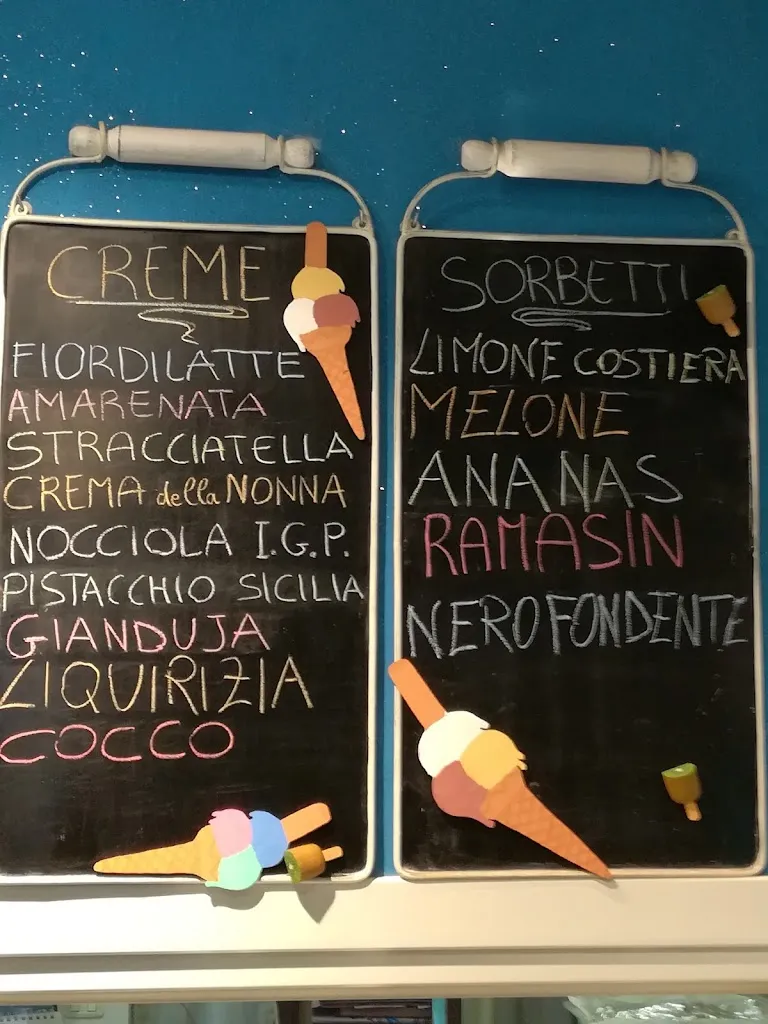 CREME
FIORDILATTE
AMARENATA
STRACCIATELLA
CREMA della NONNA
NOCCIOLA I.G.P.
PISTACCHIO SICILIA
GIANDUJA
LIQUIRIZIA
COCCO
SORBETTI
LIMONE COSTIERA
MELONE
ANANAS
RAMASIN
NERO FONDENTE